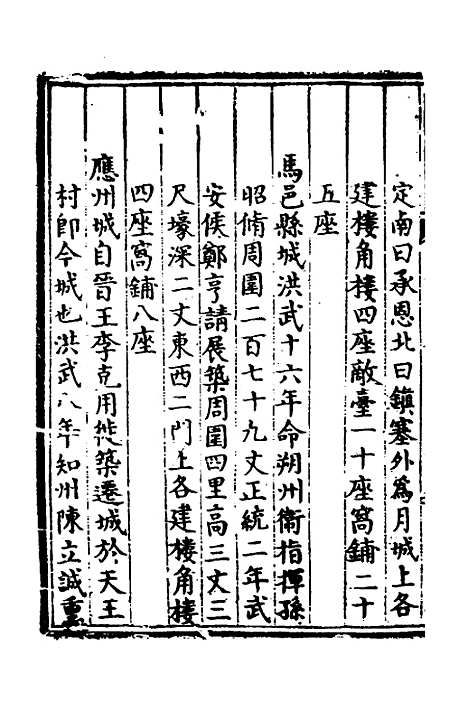 定南曰承恩北曰鎮塞外為月城上各
建樓角樓四座敵臺一十座窩鋪二十
五座
馬邑縣城洪武十六年命朔州衛指揮孫
昭脩周圍二百七十九丈正統二年武
安侯鄭亨請展築周圍四里高三丈三
尺壕深二丈東西二門上各建樓角樓
四座窩鋪八座
應州城自晉王李克用𢓡築遷城於天王
村即今城也洪武八年知州陳立誠重